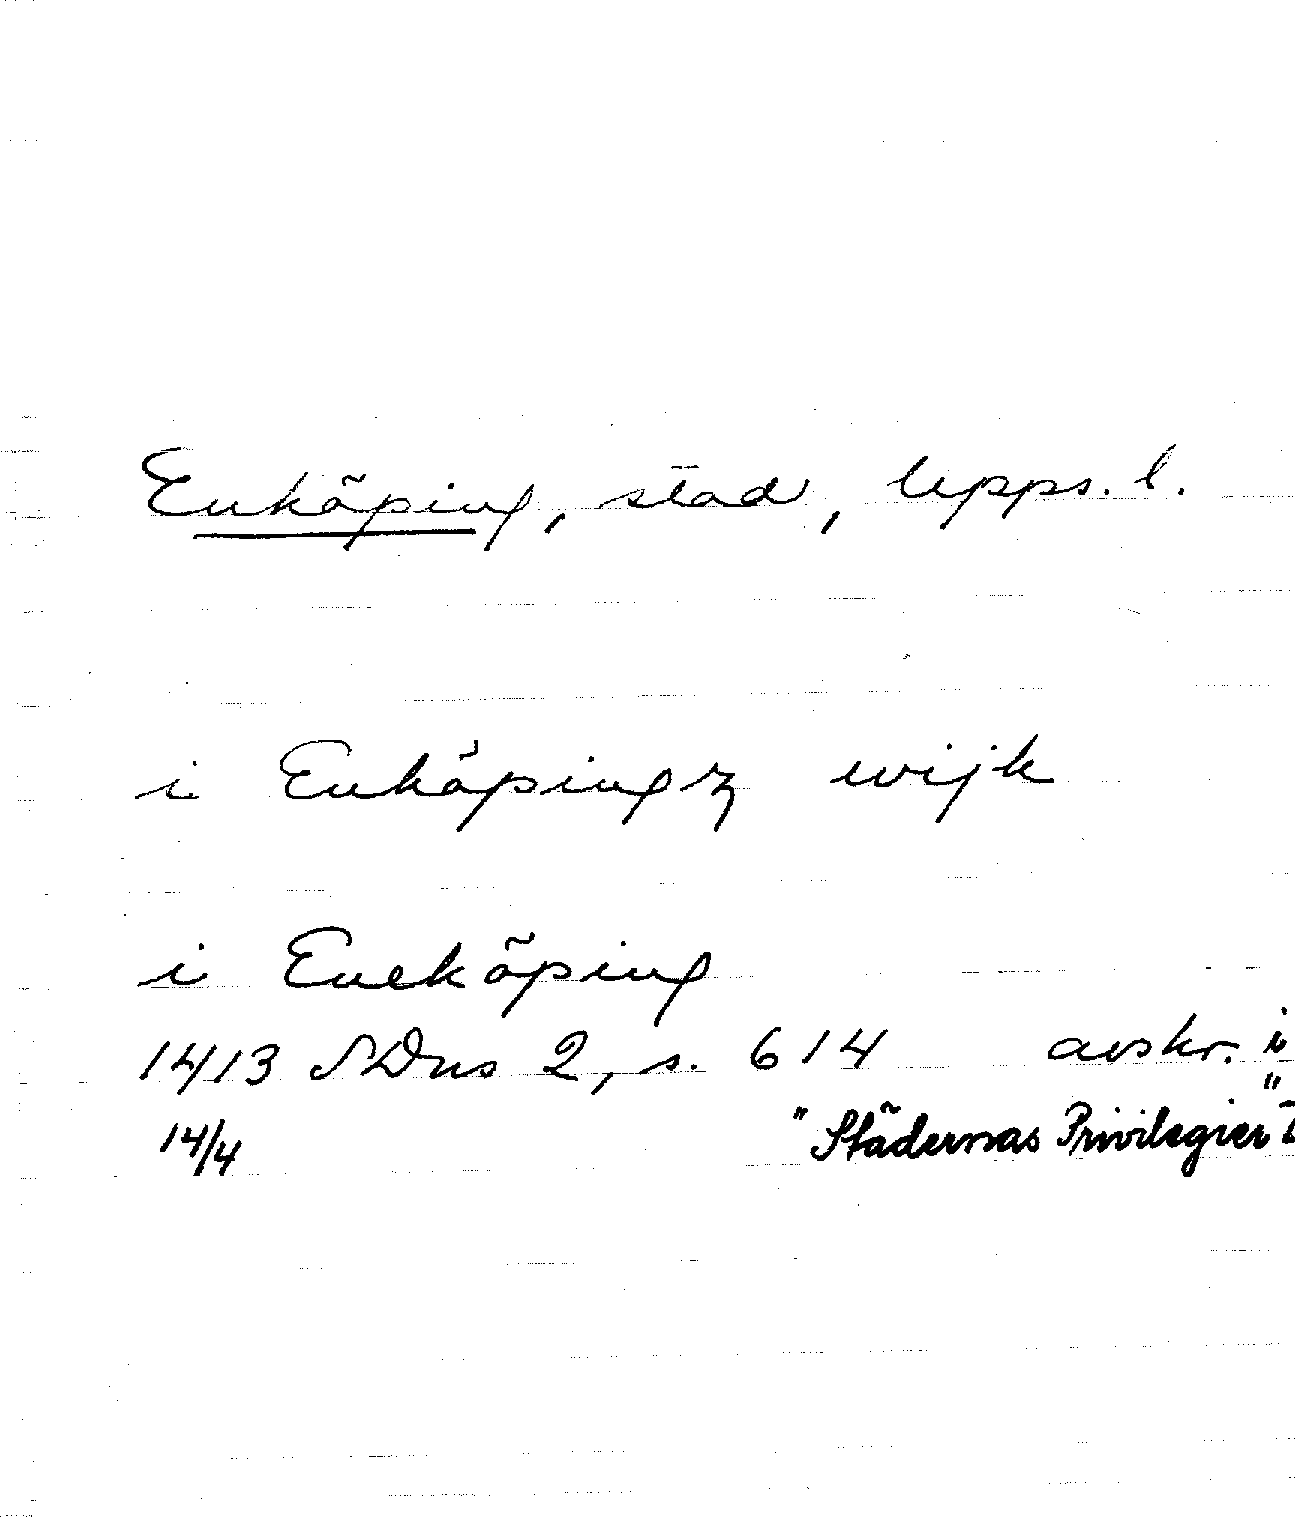 Enköping, stad, Upps. l.
i Enköpingz wijk
i Eneköping
1413 SDns 2, s. 614 avskr. i
14/4 "Städernas Privilegier" I